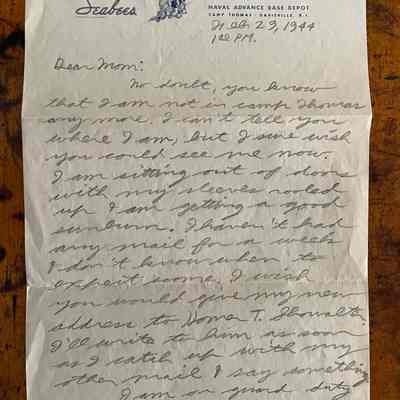 Seabees
NAVAL ADVANCE BASE DEPOT
CAMP THOMAS · DAVISVILLE, R. I.
Feb 23, 1944
1:00 P.M.
Dear Mom:
No doubt, you know
that I am not in camp Thomas
any more. I can't tell you
where I am, but I sure wish
you could see me now.
I am sitting out of doors
with my sleeves rooled
up & am getting a good
sunburn. I haven't had
any mail for a week
& don't know when to
expect some. I wish
you would give my new
address to Homer T. Showalter.
I'll write to him as soon
as I catch up with my
other mail & say something
I am on guard duty